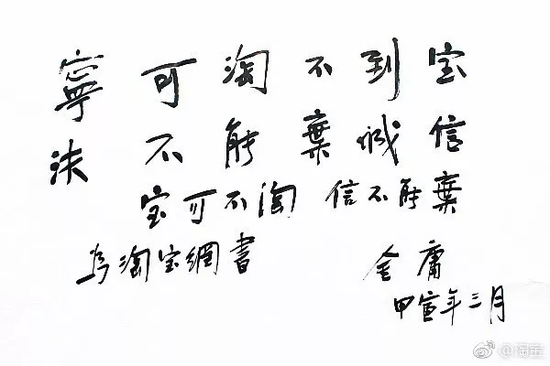 寧可淘不到宝
決不能棄诚信
宝可不淘 信不能棄
为淘宝網書
金庸
甲寅年三月
@淘宝